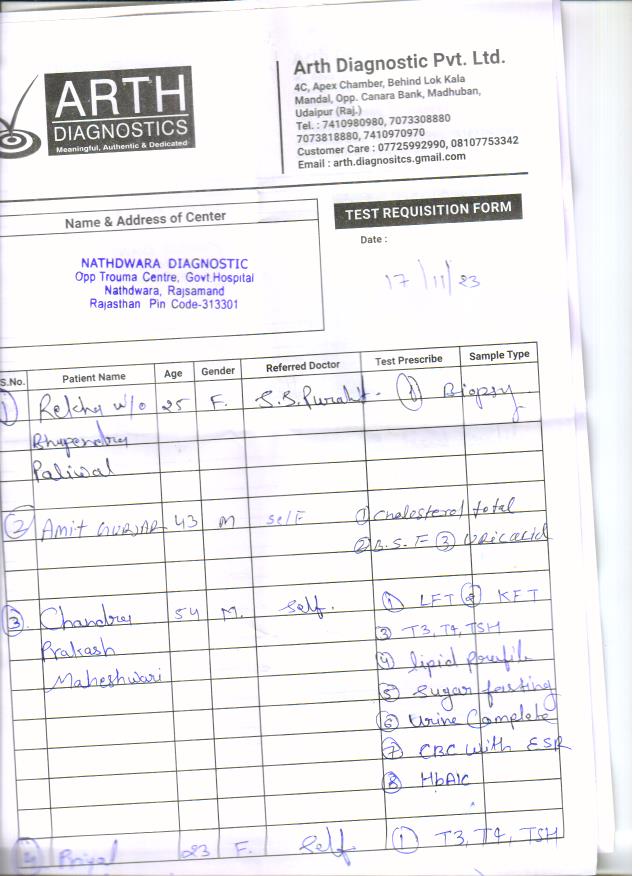 ARTH
DIAGNOSTICS
Meaningful, Authentic & Dedicated
Arth Diagnostic Pvt. Ltd.
4C, Apex Chamber, Behind Lok Kala
Mandal, Opp. Canara Bank, Madhuban,
Udaipur (Raj.)
Tel. : 7410980980, 7073308880
7073818880, 7410970970
Customer Care : 07725992990, 08107753342
Email : arth.diagnositcs.gmail.com
Name & Address of Center
NATHDWARA DIAGNOSTIC
Opp Trouma Centre, Govt.Hospital
Nathdwara, Rajsamand
Rajasthan Pin Code-313301
TEST REQUISITION FORM
Date :
17/11/23
S.No. Patient Name Age Gender Referred Doctor Test Prescribe Sample Type
1 Rekha w/o 25 F. S.S. Purohit. 1 Biopsy
Bhupendra
Paliwal
2 Amit GURJAR 43 M self 1 Cholesterol total
2 B.S.F 3 Uric acid
3. Chandra 54 M. Self. 1 LFT 2 KFT
Prakash 3 T3, T4, TSH
Maheshwari 4 lipid profile
5 Sugar fasting
6 Urine Complete
7 CBC with ESR
8 HbA1c
4 Priyal 23 F. Self 1 T3, T4, TSH